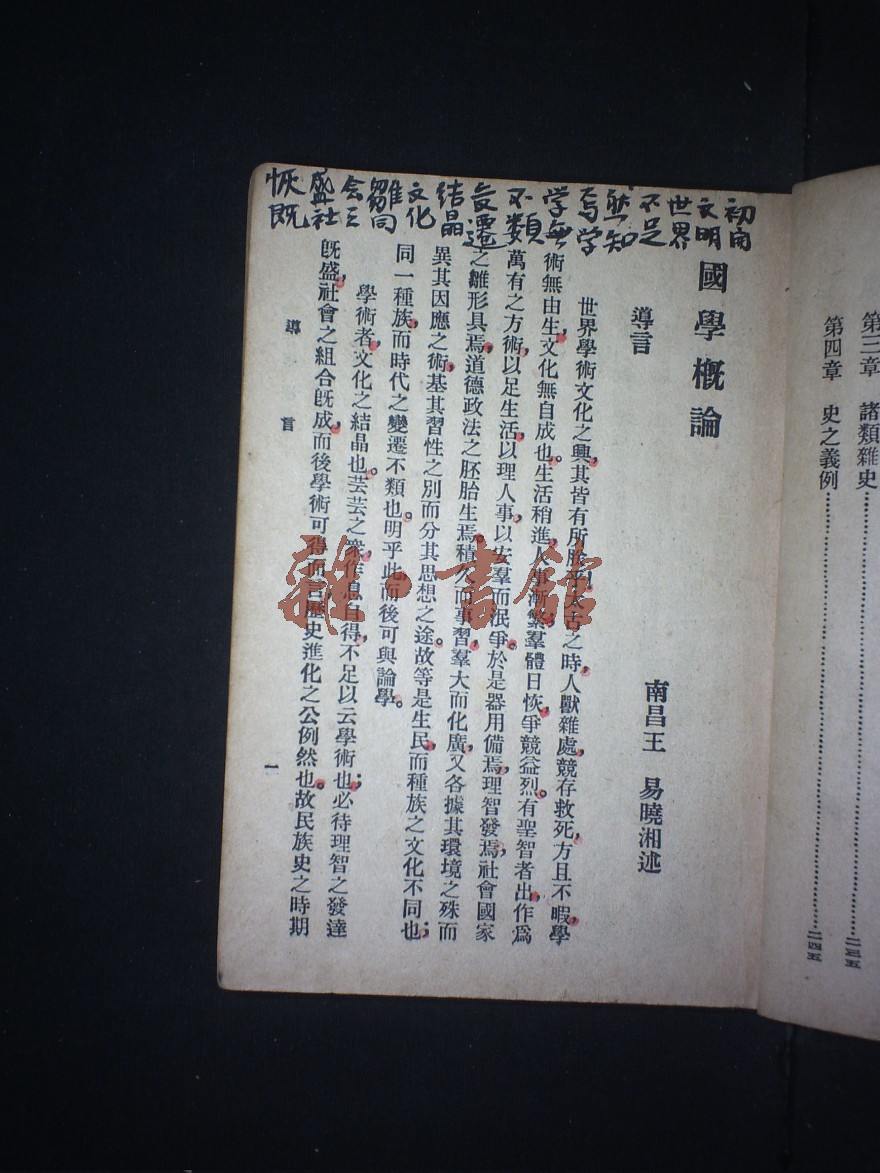 第三章　諸類雜史……二三五
第四章　史之義例……二四五
初
文明
世界
不足
知
学
学無
不類
遷
結晶
文化
雛同
会
盛社
恢既
國學概論
導言
南昌王　易曉湘述
世界學術文化之興，其皆有所胎乎？太古之時，人獸雜處，競存救死，方且不暇，學
術無由生，文化無自成也。生活稍進，人事漸繁，羣體日恢，爭競益烈。有聖智者出，作爲
萬有之方術，以足生活，以理人事，以安羣而泯爭。於是器用備焉，理智發焉，社會國家
之雛形具焉，道德政法之胚胎生焉。積久而事習，羣大而化廣，又各據其環境之殊，而
異其因應之術，基其習性之別，而分其思想之途。故等是生民，而種族之文化不同也；
同一種族，而時代之變遷不類也。明乎此，而後可與論學。
學術者，文化之結晶也。芸芸之衆，作息自得，不足以云學術也；必待理智之發達
旣盛，社會之組合旣成，而後學術可得而言，歷史進化之公例然也。故民族史之時期
導言
一
雜·書館